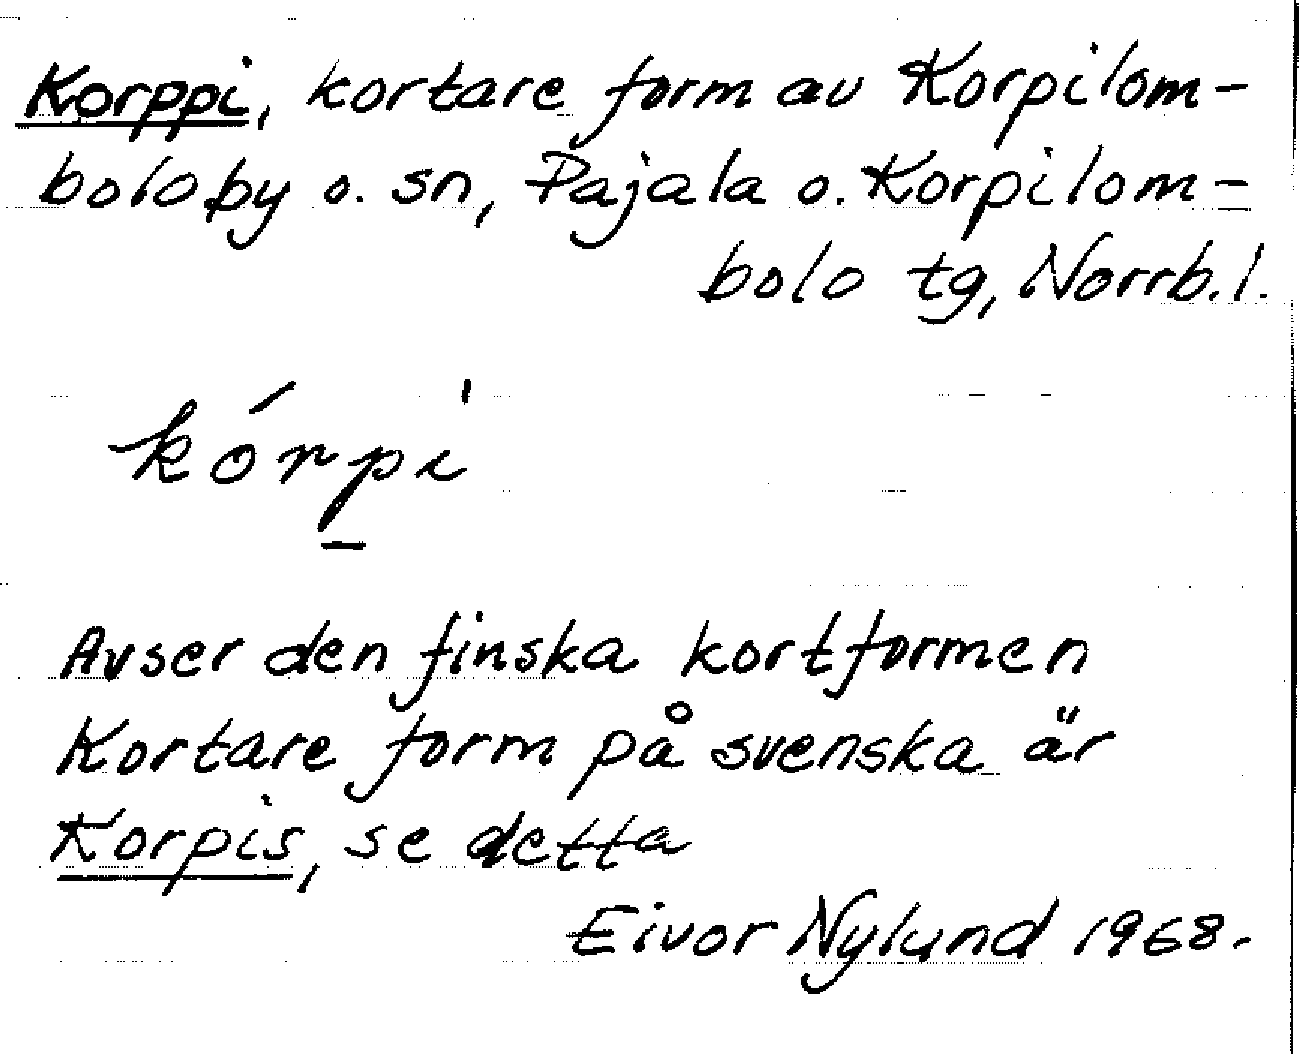 Korppi, kortare form av Korpilom-
boloby o. sn, Pajala o. Korpilom-
bolo tg, Norrb. l.
kórpi
Avser den finska kortformen
Kortare form på svenska är
Korpis, se detta
Eivor Nylund 1968.